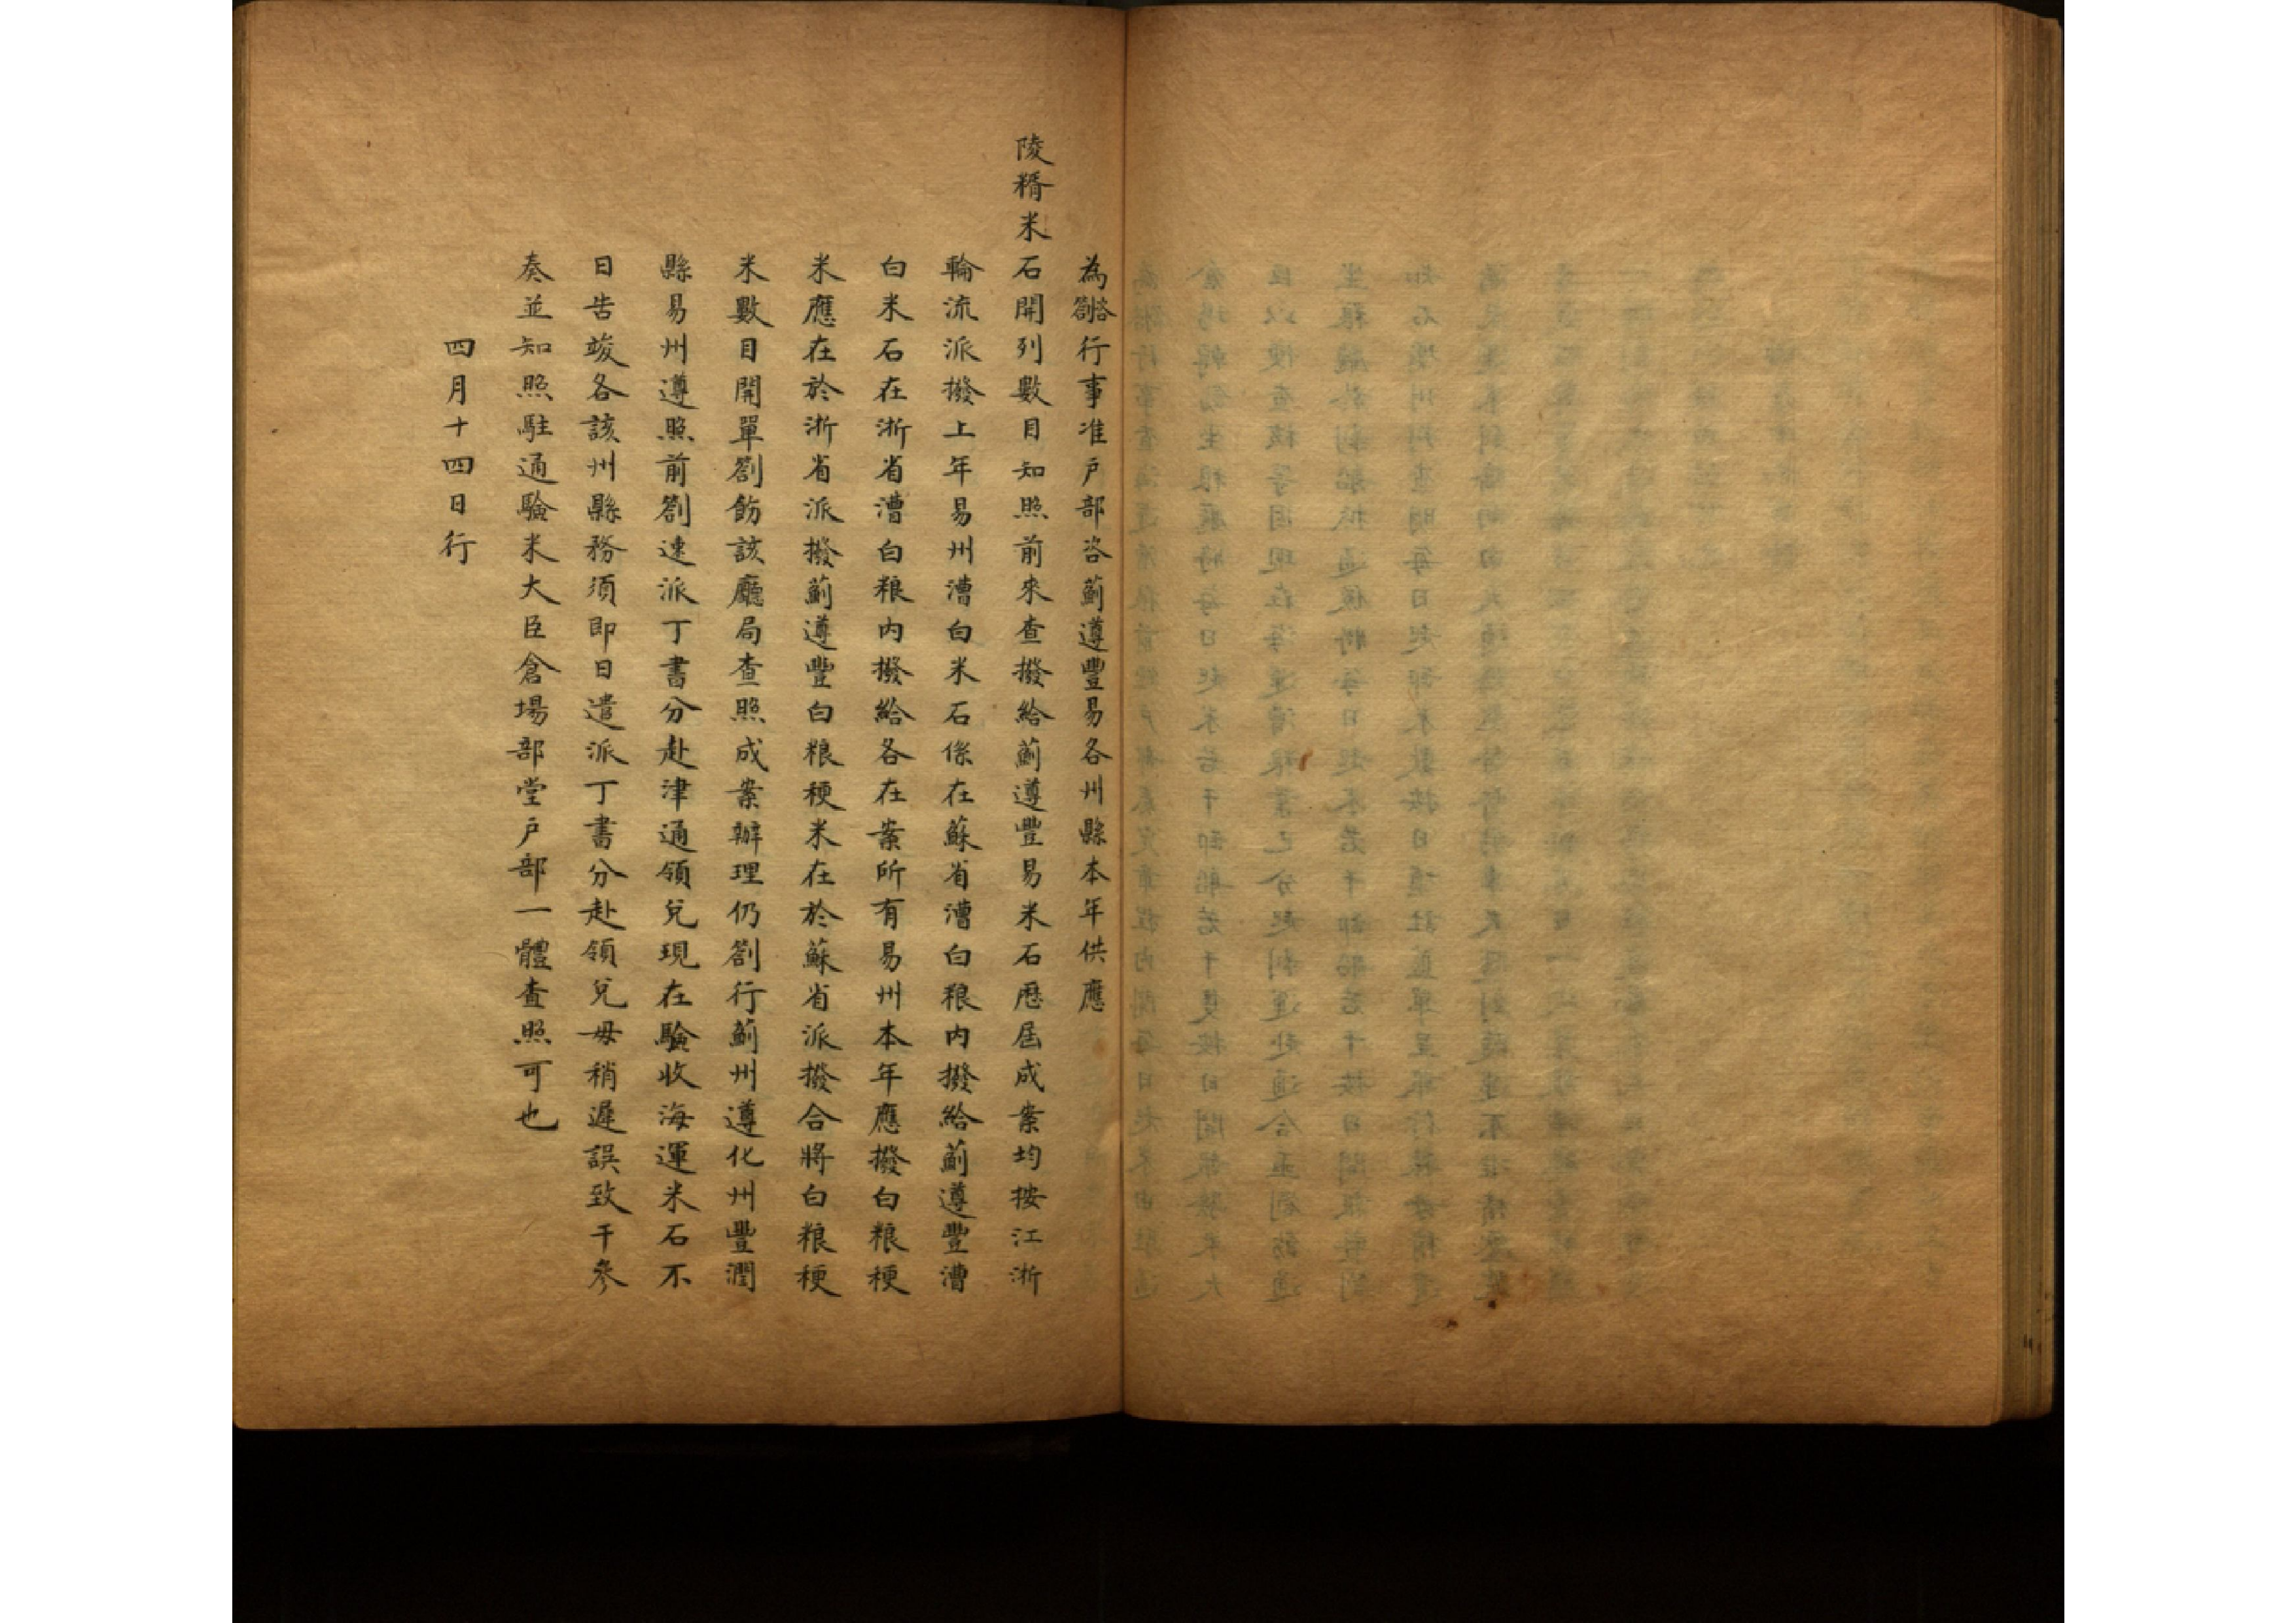 為咨劄行事准户部咨薊遵豐易各州縣本年供應
陵糈米石開列數目知照前來查撥給薊遵豐易米石歷屆成案均按江浙
輪流派撥上年易州漕白米石係在蘇省漕白粮内撥給薊遵豐漕
白米石在浙省漕白粮内撥給各在案所有易州本年應撥白粮粳
米應在於浙省派撥薊遵豐白粮粳米在於蘇省派撥合將白粮粳
米數目開單劄飭該廳局查照成案辦理仍劄行薊州遵化州豐潤
縣易州遵照前劄速派丁書分赴津通領兑現在驗收海運米石不
日告竣各該州縣務須即日遣派丁書分赴領兑毋稍遲誤致干參
奏並知照駐通驗米大臣倉場部堂户部一體查照可也
四月十四日行